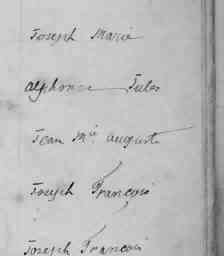 Joseph Marie
Alphonse Jules
Jean Mie auguste
Joseph François
Joseph François